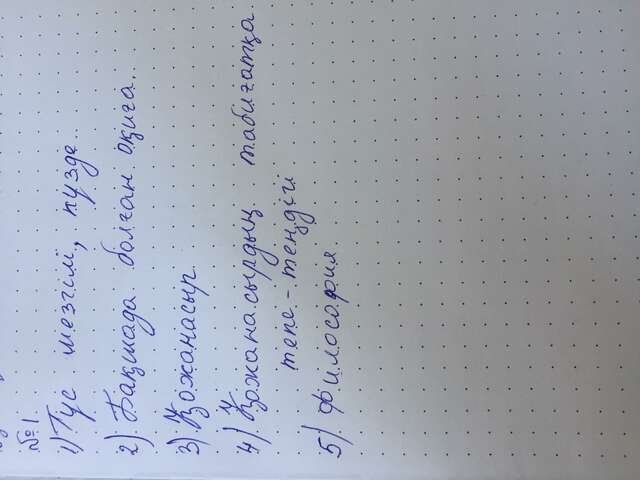 №1
1) Түс мезгілі, күзде.
2) Бақшада болған оқиға.
3) Қожанасыр.
4) Қожанасырдың табиғатқа
тепе-теңдігі
5) Философия